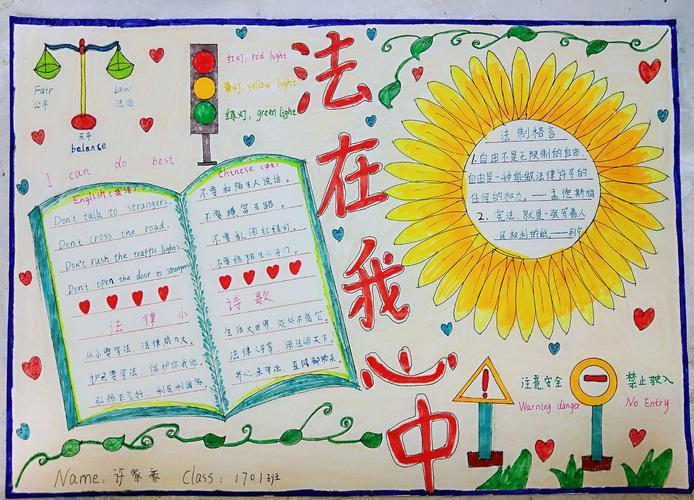 法在我心中
Fair
公平
Law
法治
天平
balanse
I can do best
红灯: red light
黄灯: yellow light
绿灯: green light
English (英语)
Don't talk to strangers.
Don't cross the road.
Don't rush the traffic lights
Don't open the door to strangers
Chinese (中文)
不要和陌生人说话。
不要横穿马路。
不要乱闯红绿灯。
不要给陌生人开门。
法律小诗歌
从小要学法,法律威力大。
学法,保护你我他。
弘扬正气好,利民利国家
生活大世界
法律人人
法制格言
1.自由不是无限制的自由,
自由是一种能做法律许可的
任何的权力。——孟德斯鸠
2、宪法,就是一张写着人
民权利的纸。——列宁
注意安全
Warning danger
禁止驶入
No Entry
Name: 许
Class: 1701班